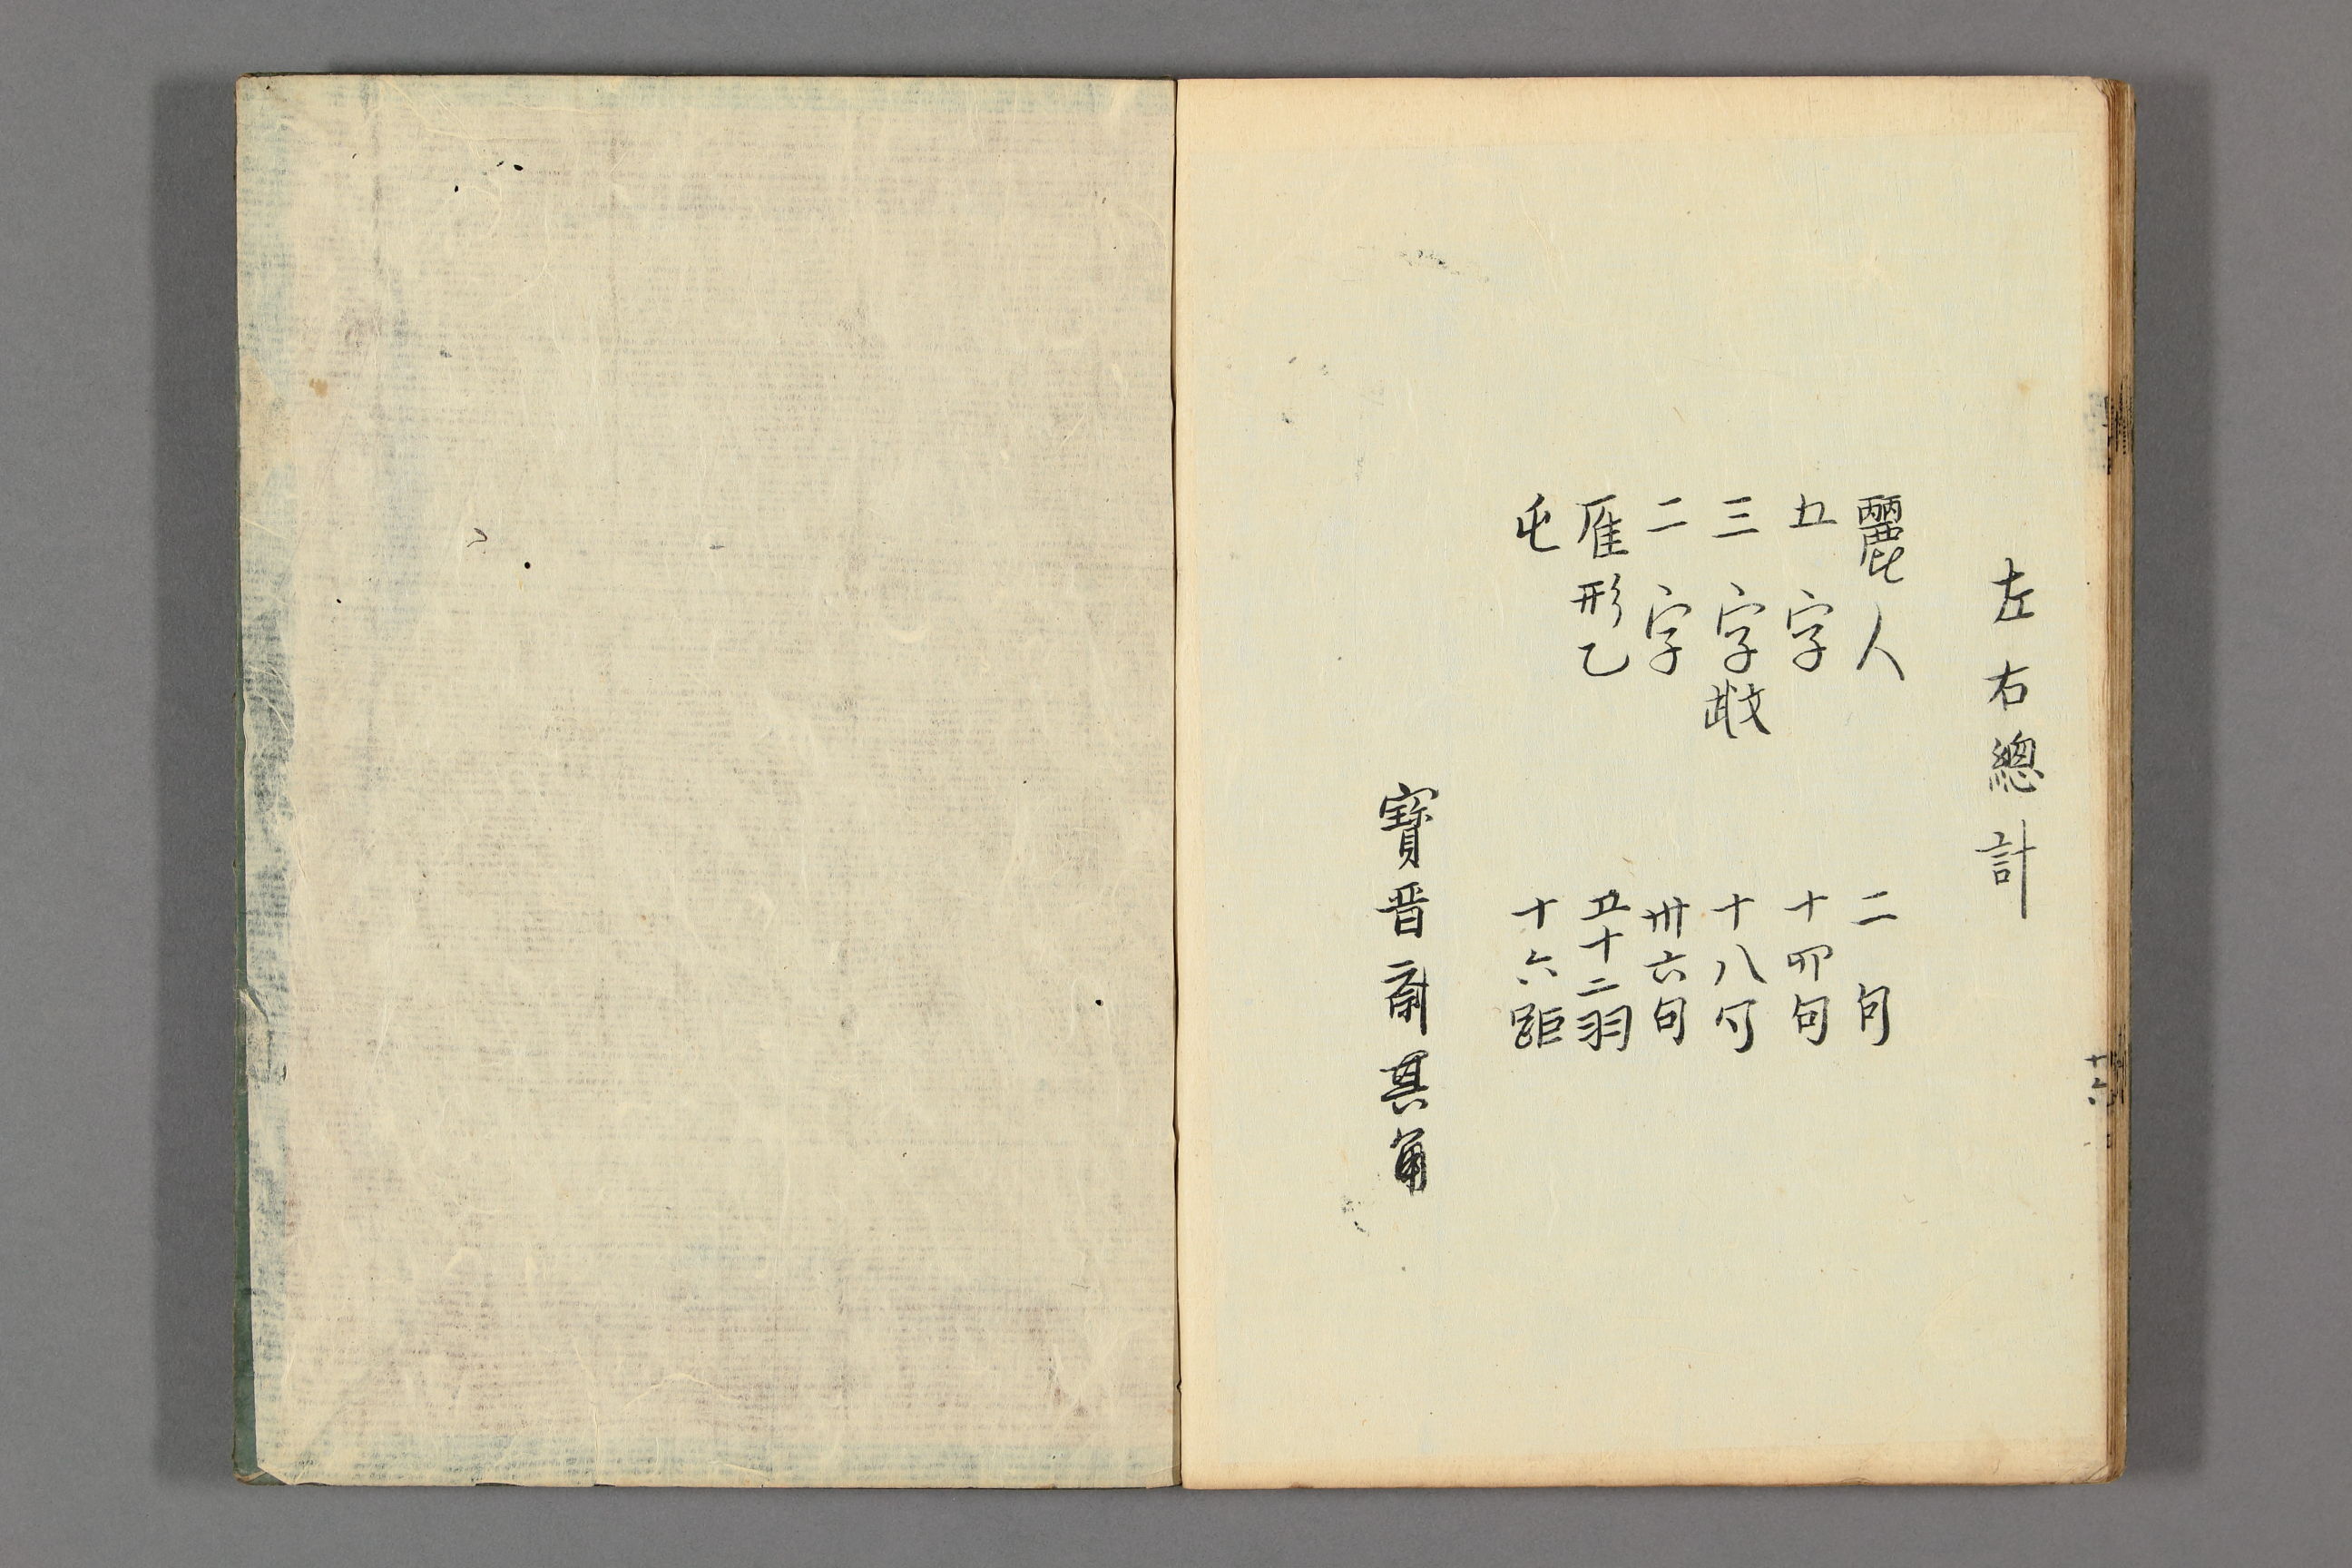 左右總計
麗人 二句
五字 十四句
三字 十八句
二字 卅六句
雁形乙 五十二羽
屯 十六距
寳晋齋其角
十六